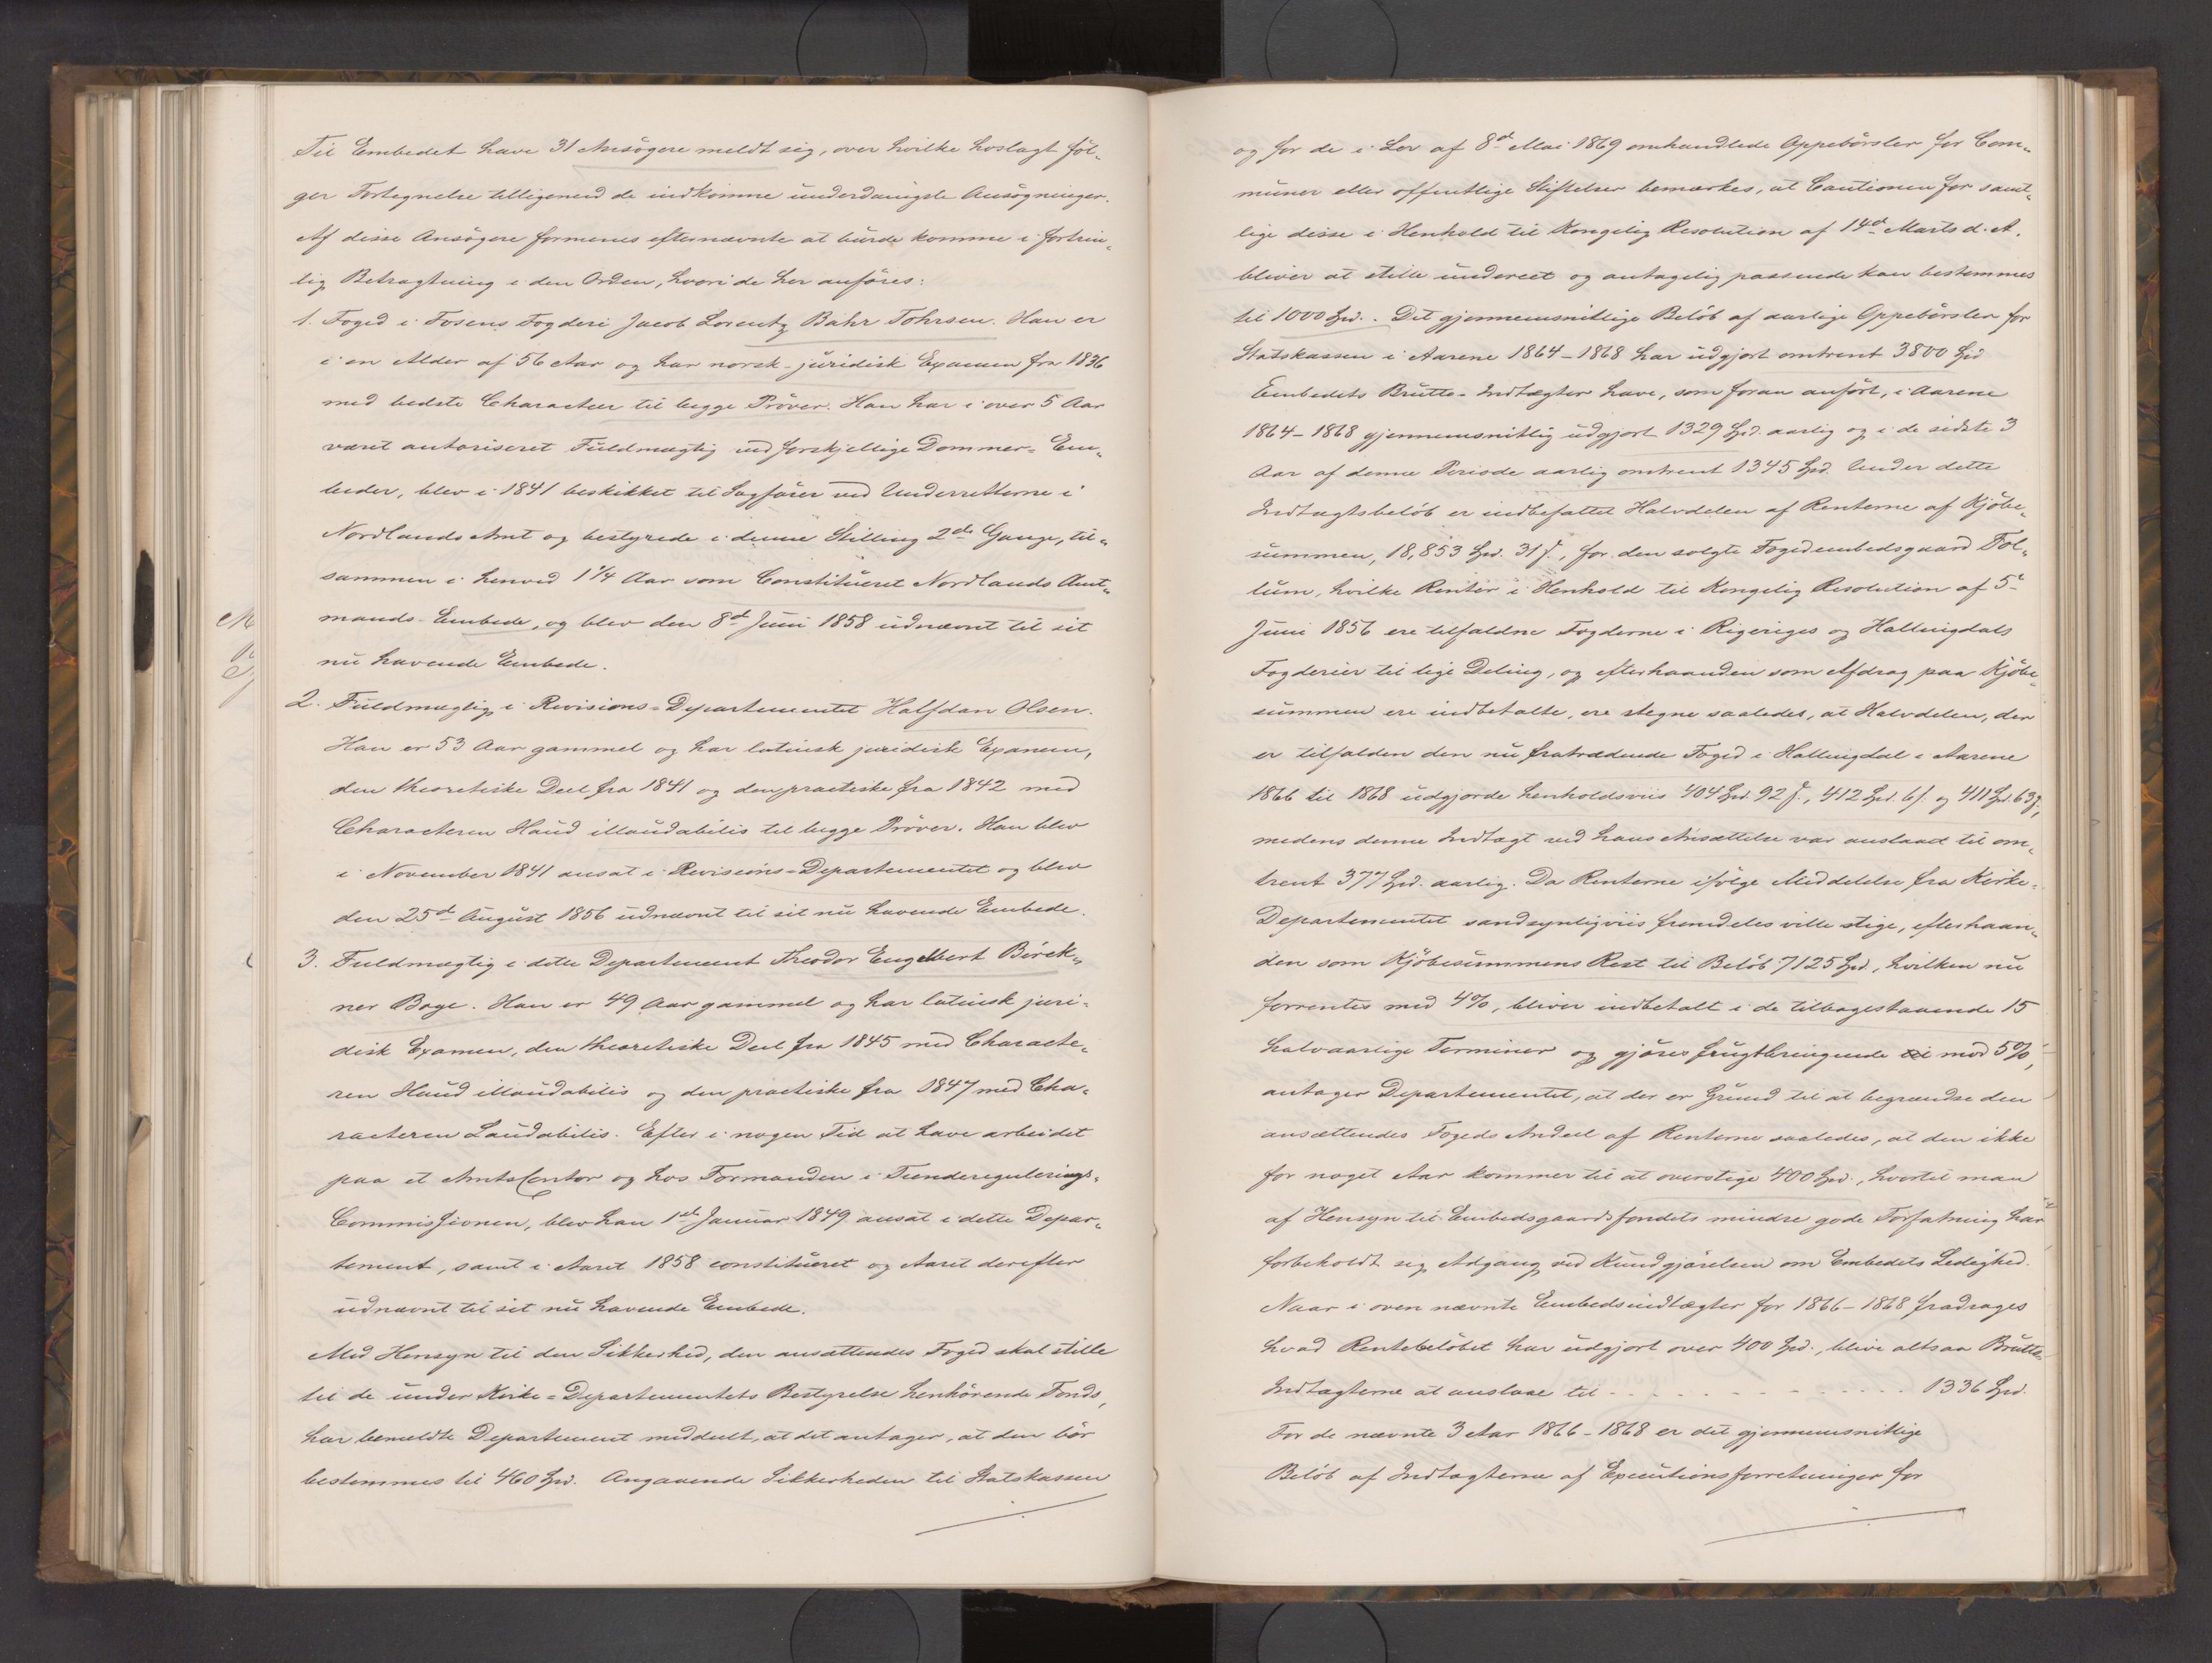 Til Embedet have 31 Ansøgere meldt sig, over hvilke hoslagt føl-
ger Fortegnelse tilligemed de indkomne underdanigste Ansøgninger.
Af disse Ansøgere formenes efternævnte at burde komme i fortrin-
lig Betragtning i den Orden, hvori de her anføres:
1. Foged i Fosens Fogderi Jacob Lorentz Bahr Tohrsen. Han er
i en Alder af 56 Aar og har norsk-juridisk Examen fra 1836
med bedste Characteer til begge Prøver. Han har i over 5 Aar
været autoriseret Fuldmægtig ved forskjellige Dommer-Em-
beder, blev i 1841 beskikket til Sagfører ved Underretterne i
Nordlands Amt og bestyrede i denne Stilling 2de Gange, til-
sammen i henved 1 1/4 Aar som Constitueret Nordlands Amt-
mands-Embede, og blev den 8d Juni 1858 udnævnt til sit
nu havende Embede.
2. Fuldmægtig i Revisions-Departementet Halfdan Olsen.
Han er 53 Aar gammel og har latinsk juridisk Examen,
den theoretiske Deel fra 1841 og den practiske fra 1842 med
Characteren Haud illaudabilis til begge Prøver. Han blev
i November 1841 ansat i Revisions-Departementet og blev
den 25d August 1856 udnævnt til sit nu havende Embede.
3. Fuldmægtig i dette Departement Theodor Engelbert Birck-
ner Boye. Han er 49 Aar gammel og har latinsk juri-
disk Examen, den theoretiske Deel fra 1845 med Characte-
ren Haud illaudabilis og den practiske fra 1847 med Cha-
racteren Laudabilis. Efter i nogen Tid at have arbeidet
paa et AmtsContor og hos Formanden i Tienderegulerings-
Commissionen, blev han 1ste Januar 1849 ansat i dette Depar-
tement, samt i Aaret 1858 constitueret og Aaret derefter
udnævnt til sit nu havende Embede.
Med Hensyn til den Sikkerhed, den ansættendes Foged skal stille
til de under Kirke-Departementets Bestyrelse henhørende Fonds,
har bemeldte Departement meddeelt, at det antager, at den bør
bestemmes til 460 Spd. Angaaende Sikkerheden til Statskassen
og for de i Lov af 8d Mai 1869 omhandlede Oppebørsler for Com-
muner eller offentlige Stiftelser bemærkes, at Cautionen for samt-
lige disse i Henhold til Kongelig Resolution af 14d Marts d. A.
bliver at stille undereet og antagelig passende kan bestemmes
til 1000 Spd. Det gjennemsnitlige Beløb af aarlige Oppebørsler for
Statskassen i Aarene 1864-1868 har udgjort omtrent 3800 Spd
Embedets Brutto-Indtægter have, som foran anført, i Aarene
1864-1868 gjennemsnitlig udgjort 1329 Spd. aarlig og i de sidste 3
Aar af denne Periode aarlig omtrent 1345 Spd. Under dette
Indtægtsbeløb er indbefattet Halvdelen af Renterne af Kjøbe-
summen, 18,853 Spd. 31 ß., for den solgte Fogedembedsgaard Tol-
lum, hvilke Renter i Henhold til Kongelig Resolution af 5-
Juni 1856 ere tilfaldne Fogderne i Rigeriges og Hallingdals
Fogderier til lige Deling, og efterhaanden som Afdrag paa Kjøbe-
summen ere indbetalte, ere stegne saaledes, at Halvdelen, der
er tilfalden den nu fratrædende Foged i Hallingdal i Aarene
1866 til 1868 udgjorde henholdsviis 404 Spd. 92 ß., 412 Spd. 6 ß. og 411 Spd. 63 ß.,
medens denne Indtægt ved hans Ansættelse var anslaaet til om-
trent 377 Spd. aarlig. Da Renterne ifølge Meddelelse fra Kirke-
Departementet sandsynligviis fremdeles ville stige, efterhaan-
den som Kjøbesummens Rest til Beløb 7125 Spd., hvilken nu
forrentes med 4%, bliver indbetalt i de tilbagestaaende 15
halvaarlige Terminer og gjøres frugtbringende mod 5%,
antager Departementet, at der er Grund til at begrændse den
ansættendes Fogeds Andeel af Renterne saaledes, at den ikke
for noget Aar kommer til at overstige 400 Spd., hvortil man
af Hensyn til Embedsgaardsfondets mindre gode Forfatning har
forbeholdt sig Adgang ved Kundgjørelsen om Embedets Ledighed.
Naar i oven nævnte Embedsindtægter for 1866-1868 fradrages
hvad Rentebeløbet har udgjort over 400 Spd., blive altsaa Brutto-
Indtægterne at anslaae til - - - - - - - - - 1336 Spd.
For de nævnte 3 Aar 1866-1868 er det gjennemsnitlige
Beløb af Indtægterne af Executionsforretninger for